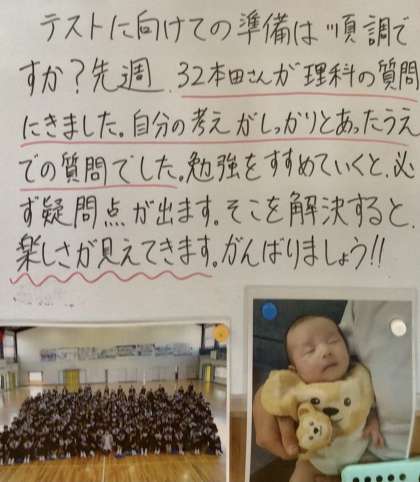 テストに向けての準備は順調で
すか？先週、32本田さんが理科の質問
にきました。自分の考えがしっかりとあったうえ
での質問でした。勉強をすすめていくと、必
ず疑問点が出ます。そこを解決すると、
楽しさが見えてきます。がんばりましょう!!